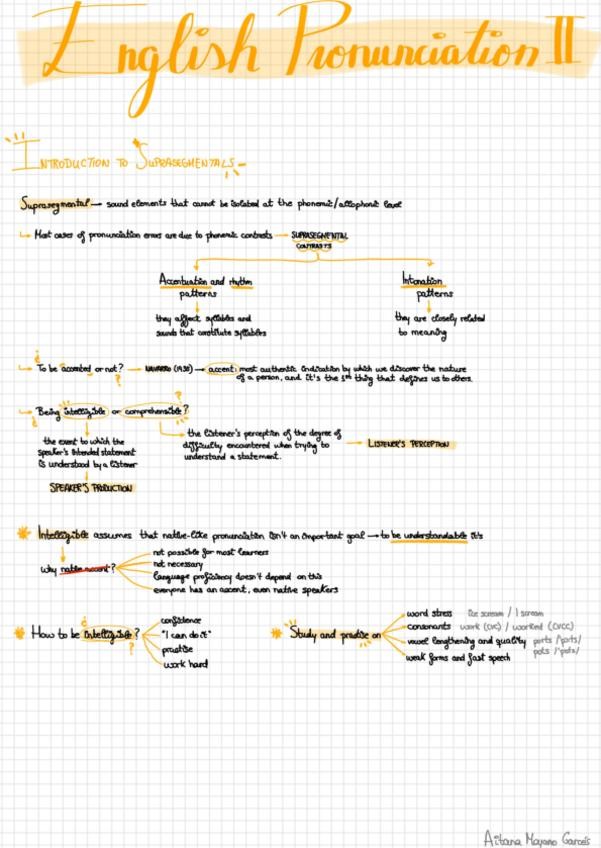 English Pronunciation II
INTRODUCTION TO SUPRASEGMENTALS
Suprasegmental → sound elements that cannot be isolated at the phonemic/allophonic level
Most cases of pronunciation errors are due to phonemic contrasts → SUPRASEGMENTAL
CONTRASTS
Accentuation and rhythm
patterns
they affect syllables and
sounds that constitute syllables
Intonation
patterns
they are closely related
to meaning
¿To be accented or not? → NAVARRO (1930) → accent: most authentic indication by which we discover the nature
of a person, and it's the 1st thing that defines us to others.
¿Being intelligible or comprehensible?
the extent to which the
speaker's intended statement
is understood by a listener
SPEAKER'S PRODUCTION
the listener's perception of the degree of
difficulty encountered when trying to
understand a statement.
→ LISTENER'S PERCEPTION
* Intelligible assumes that native-like pronunciation isn't an important goal → to be understandable it's
why native accent?
not possible for most learners
not necessary
language proficiency doesn't depend on this
everyone has an accent, even native speakers
* How to be ¿intelligible?
confidence
"I can do it"
practise
work hard
* Study and practise on
word stress ice scream / I scream
consonants work (CVC) / worked (CVCC)
vowel lengthening and quality ports /ˈpɔrts/
pots /ˈpɒts/
weak forms and fast speech
Aitana Moyano Garcés